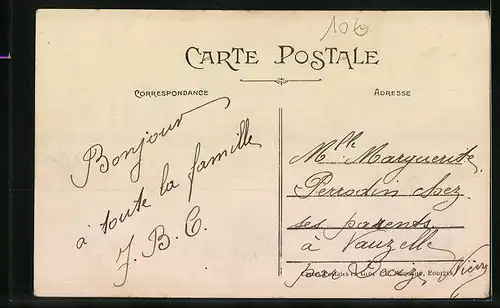 106
CARTE POSTALE
CORRESPONDANCE
ADRESSE
Bonjour
à toute la famille
J. B. C.
Mlle Marguerite
Perrodin chez
ses parents
à Vauzelle
par